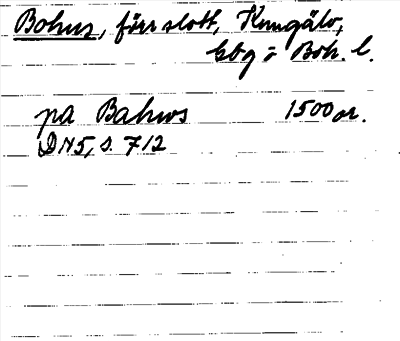 Bohus, förr slott, Kungälv,
Gbg o Boh. l.
pa Bahws 1500 or.
DN5, s. 712